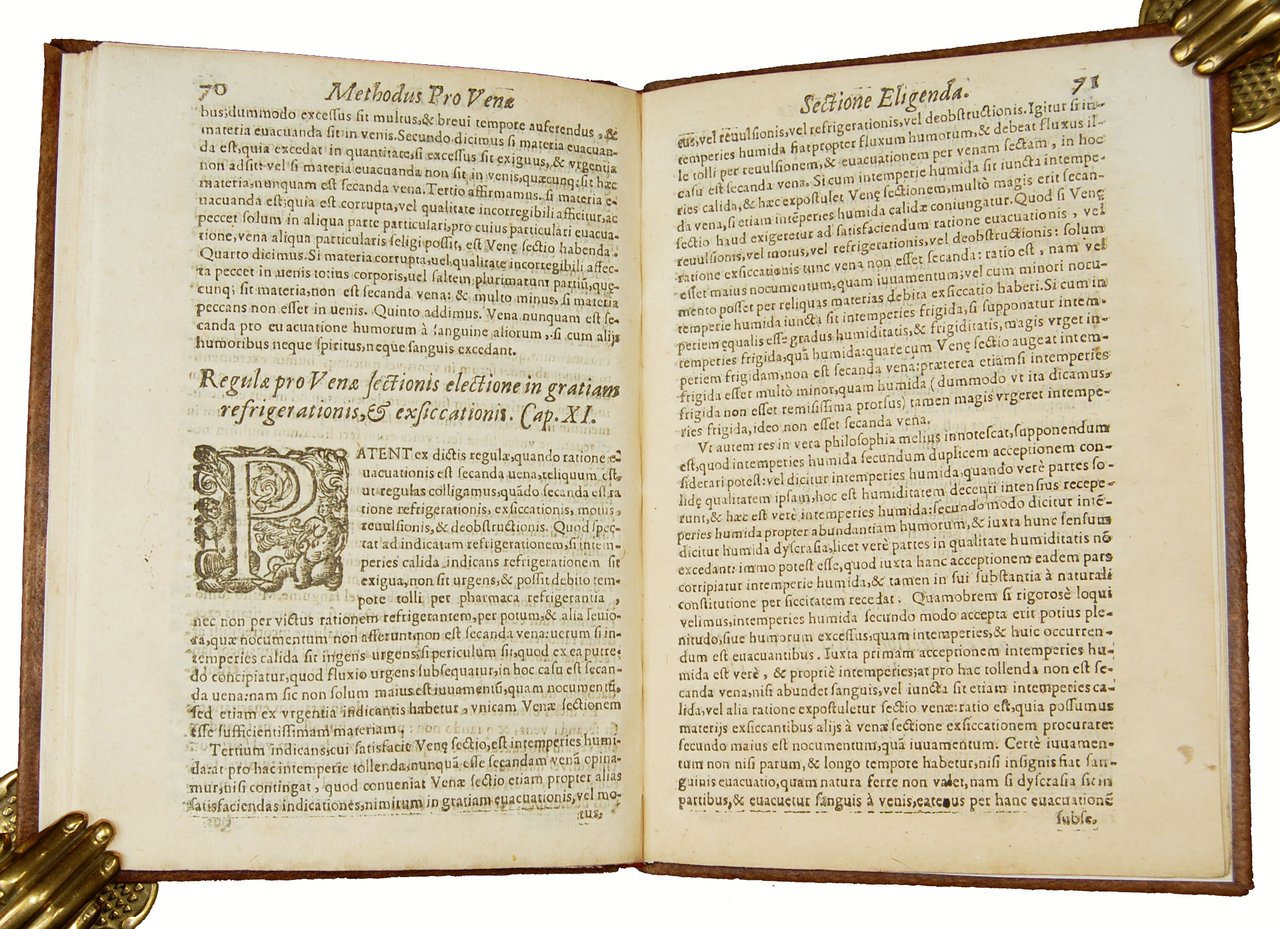 70 Methodus Pro Venæ
bus, dummodo excessus sit multus, & breui tempore auferendus, &
materia euacuanda sit in venis. Secundo dicimus si materia euacuan-
da est, quia excedat in quantitate, si excessus sit exiguus, & vrgentia
non adsit vel si materia euacuanda non sit in venis, quæcunq; sit hæc
materia, nunquam est secanda vena. Tertio affirmamus. si materia e-
uacuanda est; quia est corrupta, vel qualitate incorregibili afficitur, ac
peccet solum in aliqua parte particulari, pro cuius particulari euacua-
tione, vena aliqua particularis seligi possit, est Venę sectio habenda.
Quarto dicimus. Si materia corrupta, uel qualitate incorregibili affec-
ta peccet in uenis totius corporis, uel saltem plurimarum partiũ, quę-
cunq; sit materia, non est secanda vena: & multo minus, si materia
peccans non esset in uenis. Quinto addimus. Vena nunquam est se-
canda pro euacuatione humorum à sanguine aliorum, si cum alijs
humoribus neque spiritus, neque sanguis excedant.
Regulæ pro Venæ sectionis electione in gratiam
refrigerationis, & exsiccationis. Cap. XI.
PATENT ex dictis regula, quando ratione e-
uacuationis est secanda uena, reliquum est,
ut regulas colligamus, quãdo secanda est ra
tione refrigerationis, exsiccationis, motus,
reuulsionis, & deobstructionis. Quod spec-
tat ad indicatam refrigerationem, si intem-
peries calida indicans refrigerationem sit
exigua, non sit urgens, & possit debito tem-
pore tolli per pharmaca refrigerantia,
nec non per victus rationem refrigerantem, per potum, & alia leuio-
ra, quæ nocumentum non afferunt, non est secanda vena: uerum si in-
temperies calida sit ingens urgens, si periculum sit, quod ex ea putre-
do concipiatur, quod fluxio urgens subsequatur, in hoc casu est secan-
da uena: nam sic non solum maius est iuuamentũ, quam nocumentũ,
sed etiam ex vrgentia indicantis habetur, vnicam Venæ sectionem
esse sufficientissimam materiam;
Tertium indicans, cui satisfacit Venę sectio, est intemperies humi-
da: at pro hac intemperie tollenda, nunquã esse secandam venã opina-
mur, nisi contingat, quod conueniat Venæ sectio etiam propter alias
satisfaciendas indicationes, nimirum in gratiam euacuationis, vel mo-
tus,
Sectione Eligenda. 71
tus, vel reuulsionis, vel refrigerationis, vel deobstructionis. Igitur si in-
temperies humida fiat propter fluxum humorum, & debeat fluxus il-
le tolli per reuulsionem, & euacuationem per venam sectam, in hoc
casu est secanda vena. Si cum intemperie humida sit iuncta intempe-
ries calida, & hæc expostulet Venę sectionem, multò magis erit secan-
da vena, si etiam intẽperies humida calidæ coniungatur. Quod si Venę
sectio haud exigeretur ad satisfaciendum ratione euacuationis, vel
reuulsionis, vel motus, vel refrigerationis, vel deobstructionis: solum
ratione exsiccationis tunc vena non esset secanda: ratio est, nam vel
esset maius nocumentum, quam iuuamentum; vel cum minori nocu-
mento posset per reliquas materias debita exsiccatio haberi. Si cum in
temperie humida iuncta sit intemperies frigida, si supponatur intem-
periem ęqualis esse gradus humiditatis, & frigiditatis, magis vrget in-
temperies frigida, quã humida: quare cum Venę sectio augeat intem-
periem frigidam, non est secanda vena: præterea etiamsi intemperies
frigida esset multò minor, quam humida (dummodo vt ita dicamus,
frigida non esset remisissima prorsus) tamen magis vrgeret intempe-
ries frigida, ideo non esset secanda vena.
Vt autem res in vera philosophia melius innotescat, supponendum
est, quod intemperies humida secundum duplicem acceptionem con-
siderari potest: vel dicitur intemperies humida, quando verè partes so-
lidę qualitatem ipsam, hoc est humiditatem decenti intensius recepe-
runt, & hæc est verè intemperies humida: secundo modo dicitur intẽ-
peries humida propter abundantiam humorum, & iuxta hunc sensum
dicitur humida dyscrasia, licet verè partes in qualitate humiditatis nõ
excedant: immo potest esse, quod iuxta hanc acceptionem eadem pars
corripiatur intemperie humida, & tamen in sui substantia à naturali
constitutione per siccitatem recedat. Quamobrem si rigorosè loqui
velimus, intemperies humida secundo modo accepta erit potius ple-
nitudo, siue humorum excessus, quam intemperies, & huic occurren-
dum est euacuantibus. Iuxta primam acceptionem intemperies hu-
mida est verè, & propriè intemperies; at pro hac tollenda non est se-
canda vena, nisi abundet sanguis, vel iuncta sit etiam intemperies ca-
lida, vel alia ratione expostuletur sectio venæ: ratio est, quia possumus
materijs exsiccantibus alijs à venæ sectione exsiccationem procurare:
secundo maius est nocumentum, quã iuuamentum. Certè iuuamen-
tum non nisi parum, & longo tempore habetur, nisi insignis fiat san-
guinis euacuatio, quam natura ferre non valet, nam si dyscrasia sit in
partibus, & euacuetur sanguis à venis, eatenus per hanc euacuationẽ
subse-